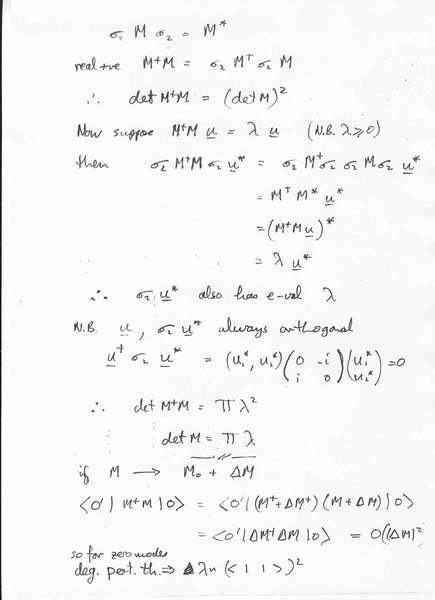 σ₂ M σ₂ = M*
real +ve M†M = σ₂ Mᵀ σ₂ M
∴ det M†M = (det M)²
Now suppose M†M u = λ u (N.B. λ ≥ 0)
then σ₂ M†M σ₂ u* = σ₂ M†σ₂ σ₂ M σ₂ u*
= Mᵀ M* u*
= (M†M u)*
= λ u*
∴ σ₂ u* also has e-val λ
N.B. u, σ₂ u* always orthogonal
u† σ₂ u* = (u₁*, u₂*) (0 -i i 0) (u₁* u₂*) = 0
∴ det M†M = Π λ²
det M = Π λ
if M → M₀ + ΔM
<0'| M†M |0> = <0'| (M†+ΔM†) (M+ΔM) |0>
= <0'| ΔM†ΔM |0> = O((ΔM)²
so for zero modes
deg. pert. th. ⇒ Δλ ~ (< | | >)²